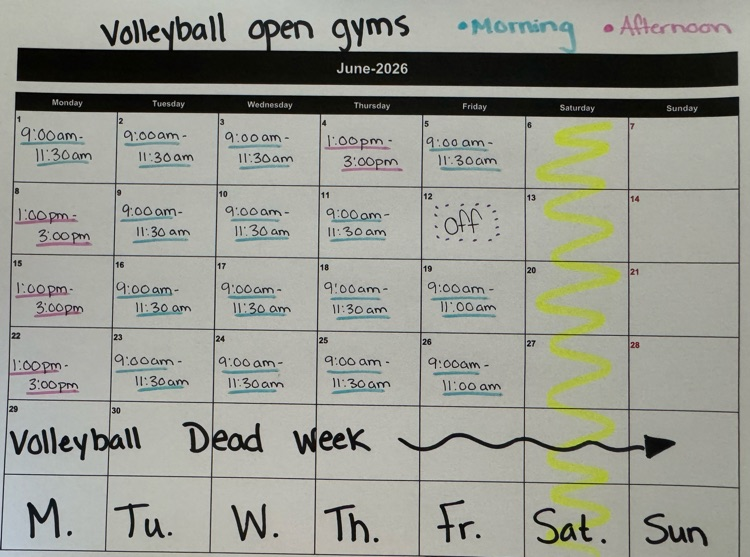 Volleyball open gyms •Morning •Afternoon
June-2026
Monday Tuesday Wednesday Thursday Friday Saturday Sunday
1 2 3 4 5 6 7
9:00am- 9:00am- 9:00am- 1:00pm- 9:00am-
11:30am 11:30am 11:30am 3:00pm 11:30am
8 9 10 11 12 13 14
1:00pm- 9:00am- 9:00am- 9:00am- Off
3:00pm 11:30am 11:30am 11:30am
15 16 17 18 19 20 21
1:00pm- 9:00am- 9:00am- 9:00am- 9:00am-
3:00pm 11:30am 11:30am 11:30am 11:00am
22 23 24 25 26 27 28
1:00pm- 9:00am- 9:00am- 9:00am- 9:00am-
3:00pm 11:30am 11:30am 11:30am 11:00am
29 30
Volleyball Dead Week
M. Tu. W. Th. Fr. Sat. Sun